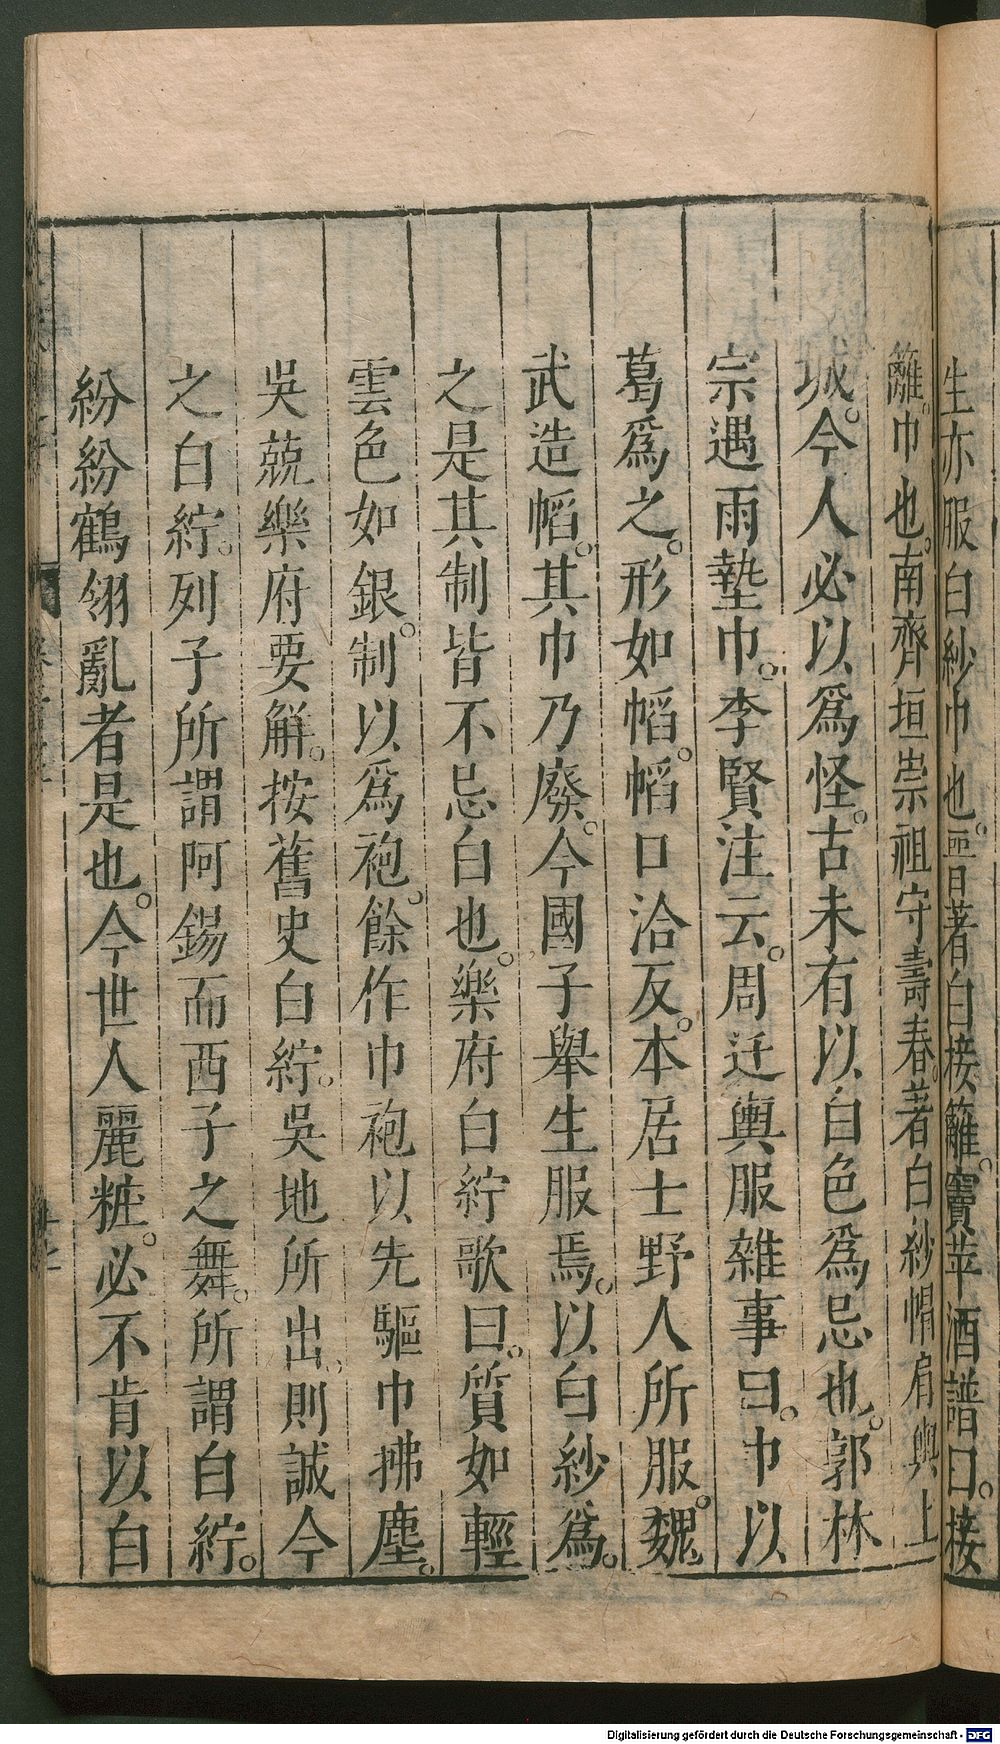 生亦服白紗巾也。一日著白接籬。竇苹酒譜曰。接
籬。巾也。南齊垣崇祖守壽春。著白紗帽。肩輿上
城。今人必以爲怪。古未有以白色爲忌也。郭林
宗遇雨墊巾。李賢注云。周迁輿服雜事曰。巾以
葛爲之。形如幍。幍口洽反。本居士野人所服。魏
武造幍。其巾乃廢。今國子學生服焉。以白紗爲。
之是其制皆不忌白也。樂府白紵歌曰。質如輕
雲色如銀。制以爲袍。餘作巾袍以先驅巾拂塵。
吳兢樂府要解。按舊史白紵。吳地所出。則誠今
之白紵。列子所謂阿錫而西子之舞。所謂白紵。
紛紛鶴翎亂者是也。今世人麗粧。必不肯以白
Digitalisierung gefördert durch die Deutsche Forschungsgemeinschaft - DFG